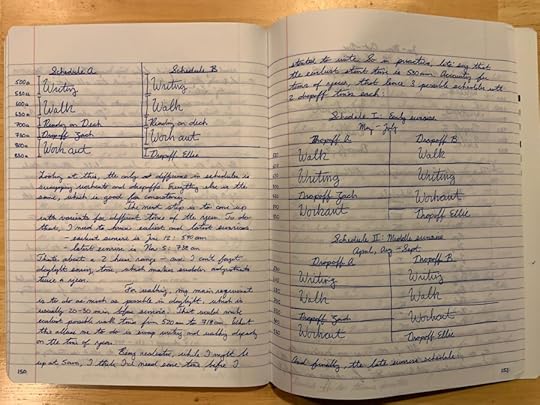 Schedule A Schedule B
500a
Writing Writing
530a
600a
Walk Walk
630a
700a
Reading on Deck Reading on deck
Dropoff Zach
750a
Workout Workout
800a
830a Dropoff Ellie
Looking at this, the only difference in schedules is
swapping workouts and dropoffs. Everything else is the
same, which is good for consistency.
The next step is to come up
with variants for different times of the year. To do
that, I need to know earliest and latest sunrises.
- earliest sunrise is Jun 12:
- latest sunrise is Nov 5: 738am
That's about a 2 hour range - and I can't forget
daylight saving time, which makes sudden adjustments
twice a year.
For walking, my main requirement
is to do as much as possible in daylight, which is
usually 20-30 min before sunrise. That would make
earliest possible walk time from 520am to 718am. What
this allows me to do is swap writing and walking depending
on the time of year.
Being realistic, while I might be
up at 5am, I think I'll need some time before I
150
started to write. So in practice, let's say that
the earliest start time is 530am. Accounting for
times of year, that leaves 3 possible schedules with
2 dropoff times each:
Schedule I: Early sunrise
May - July
Dropoff A Dropoff B
Walk Walk
Writing Writing
Dropoff Zach
Workout Workout
Dropoff Ellie
Schedule II: Middle sunrise
April, Aug - Sept
Dropoff A Dropoff B
Writing Writing
Walk Walk
Dropoff Zach
Workout Workout
Dropoff Ellie
And finally, the late sunrise schedule: